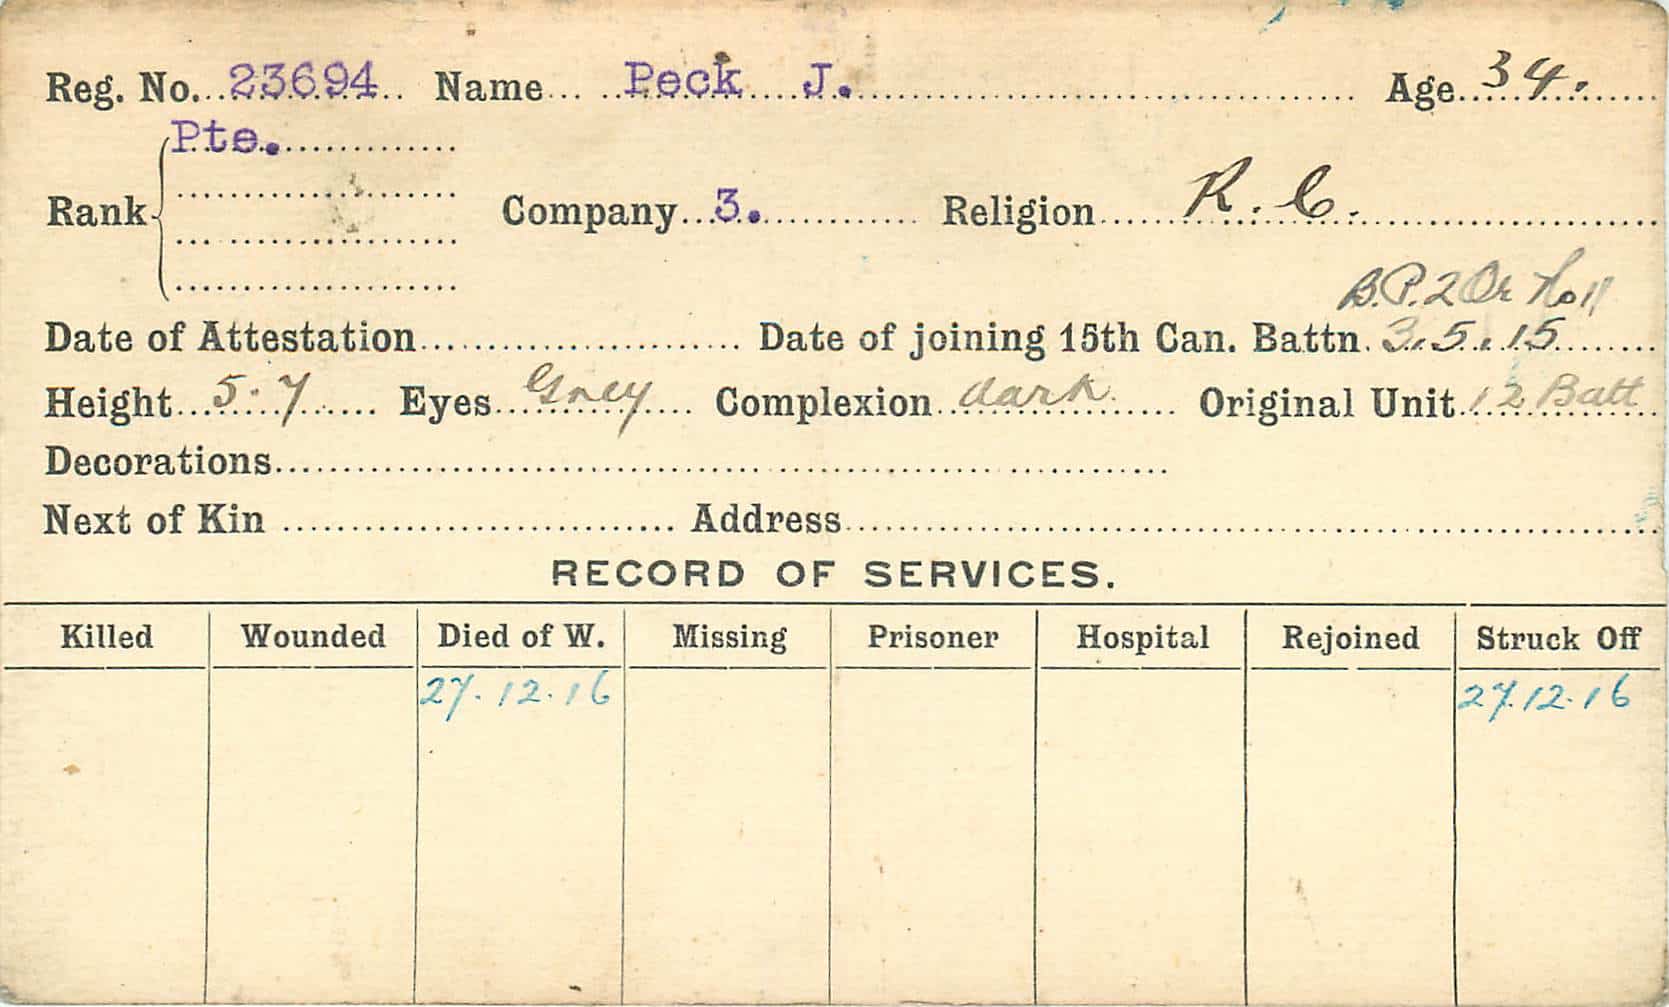 Reg. No. 23694 Name Peck J. Age 34.
Pte.
Rank Company 3. Religion R. C.
B.P. 2 Or Roll
Date of Attestation Date of joining 15th Can. Battn. 3.5.15
Height 5.7 Eyes Grey Complexion dark Original Unit 12 Batt
Decorations
Next of Kin Address
RECORD OF SERVICES.
Killed Wounded Died of W. Missing Prisoner Hospital Rejoined Struck Off
27.12.16 27.12.16